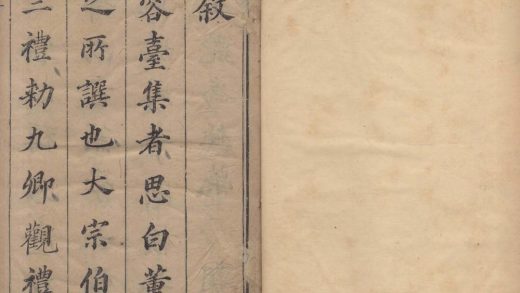 叙
容臺集者思白董
之所譔也大宗伯
三禮勑九卿觀禮